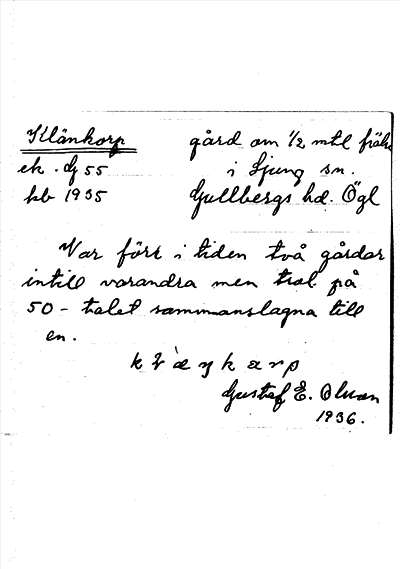 Klänkorp gård om 1/2 mtl frälse
ek. dj 55 i Ljung sn.
kb 1935 Gullbergs hd. Ögl
Var förr i tiden två gårdar
intill varandra men trol på
50-talet sammanslagna till
en.
Gustaf E. Olsson
1936.